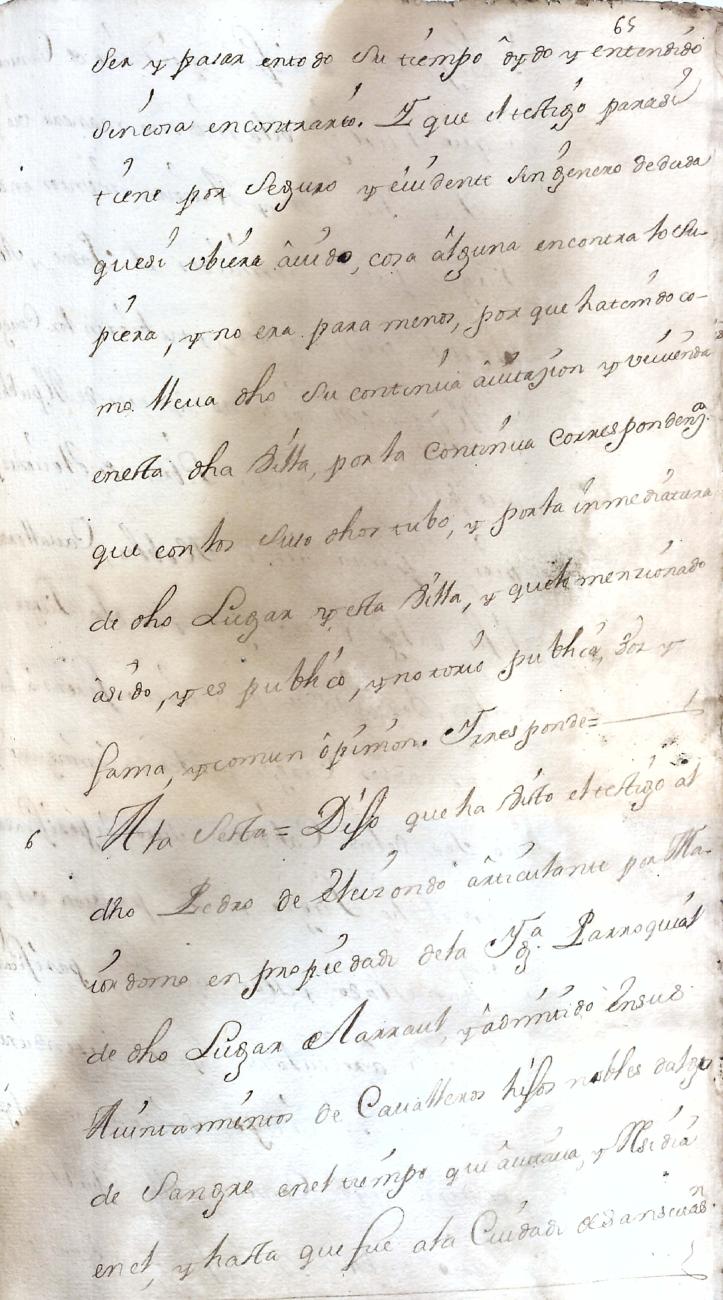 65
ser y pasar entodo su tiempo ôydo y entendido
sin cosa encontrario. Y que el testigo parasi
tiene por seguro y euidente sin genero deduda
quesi ubiera âuido, cosa âlguna encontra lo su-
piera, y no era para menos, por que haciendo co-
mo lleua dho su continua âuitazion y viuienda
enesta dha Villa, por la continua Correspondenzª.
que con los suso dhos tubo, y por la inmediazion
de dho Lugar y esta Villa, y quelo menzionado
âsido, y es publico, y notorio publica, Voz y
fama, y comun ôpinion. Y responde=
6 A la Sesta= Dijo que ha visto el testigo al
dho Pedro de Elizondo ârticulante por Ma-
iordomo en propiedad dela Ygª. Parroquial
de dho Lugar de Larraul, y âdmitido ensus
Aiuntamientos de Caualleros hijos nobles dalgo
de Sangre enel tiempo que âuitaua, y Residia
en el, y hasta que fue ala Ciudad de Sanseuasn.